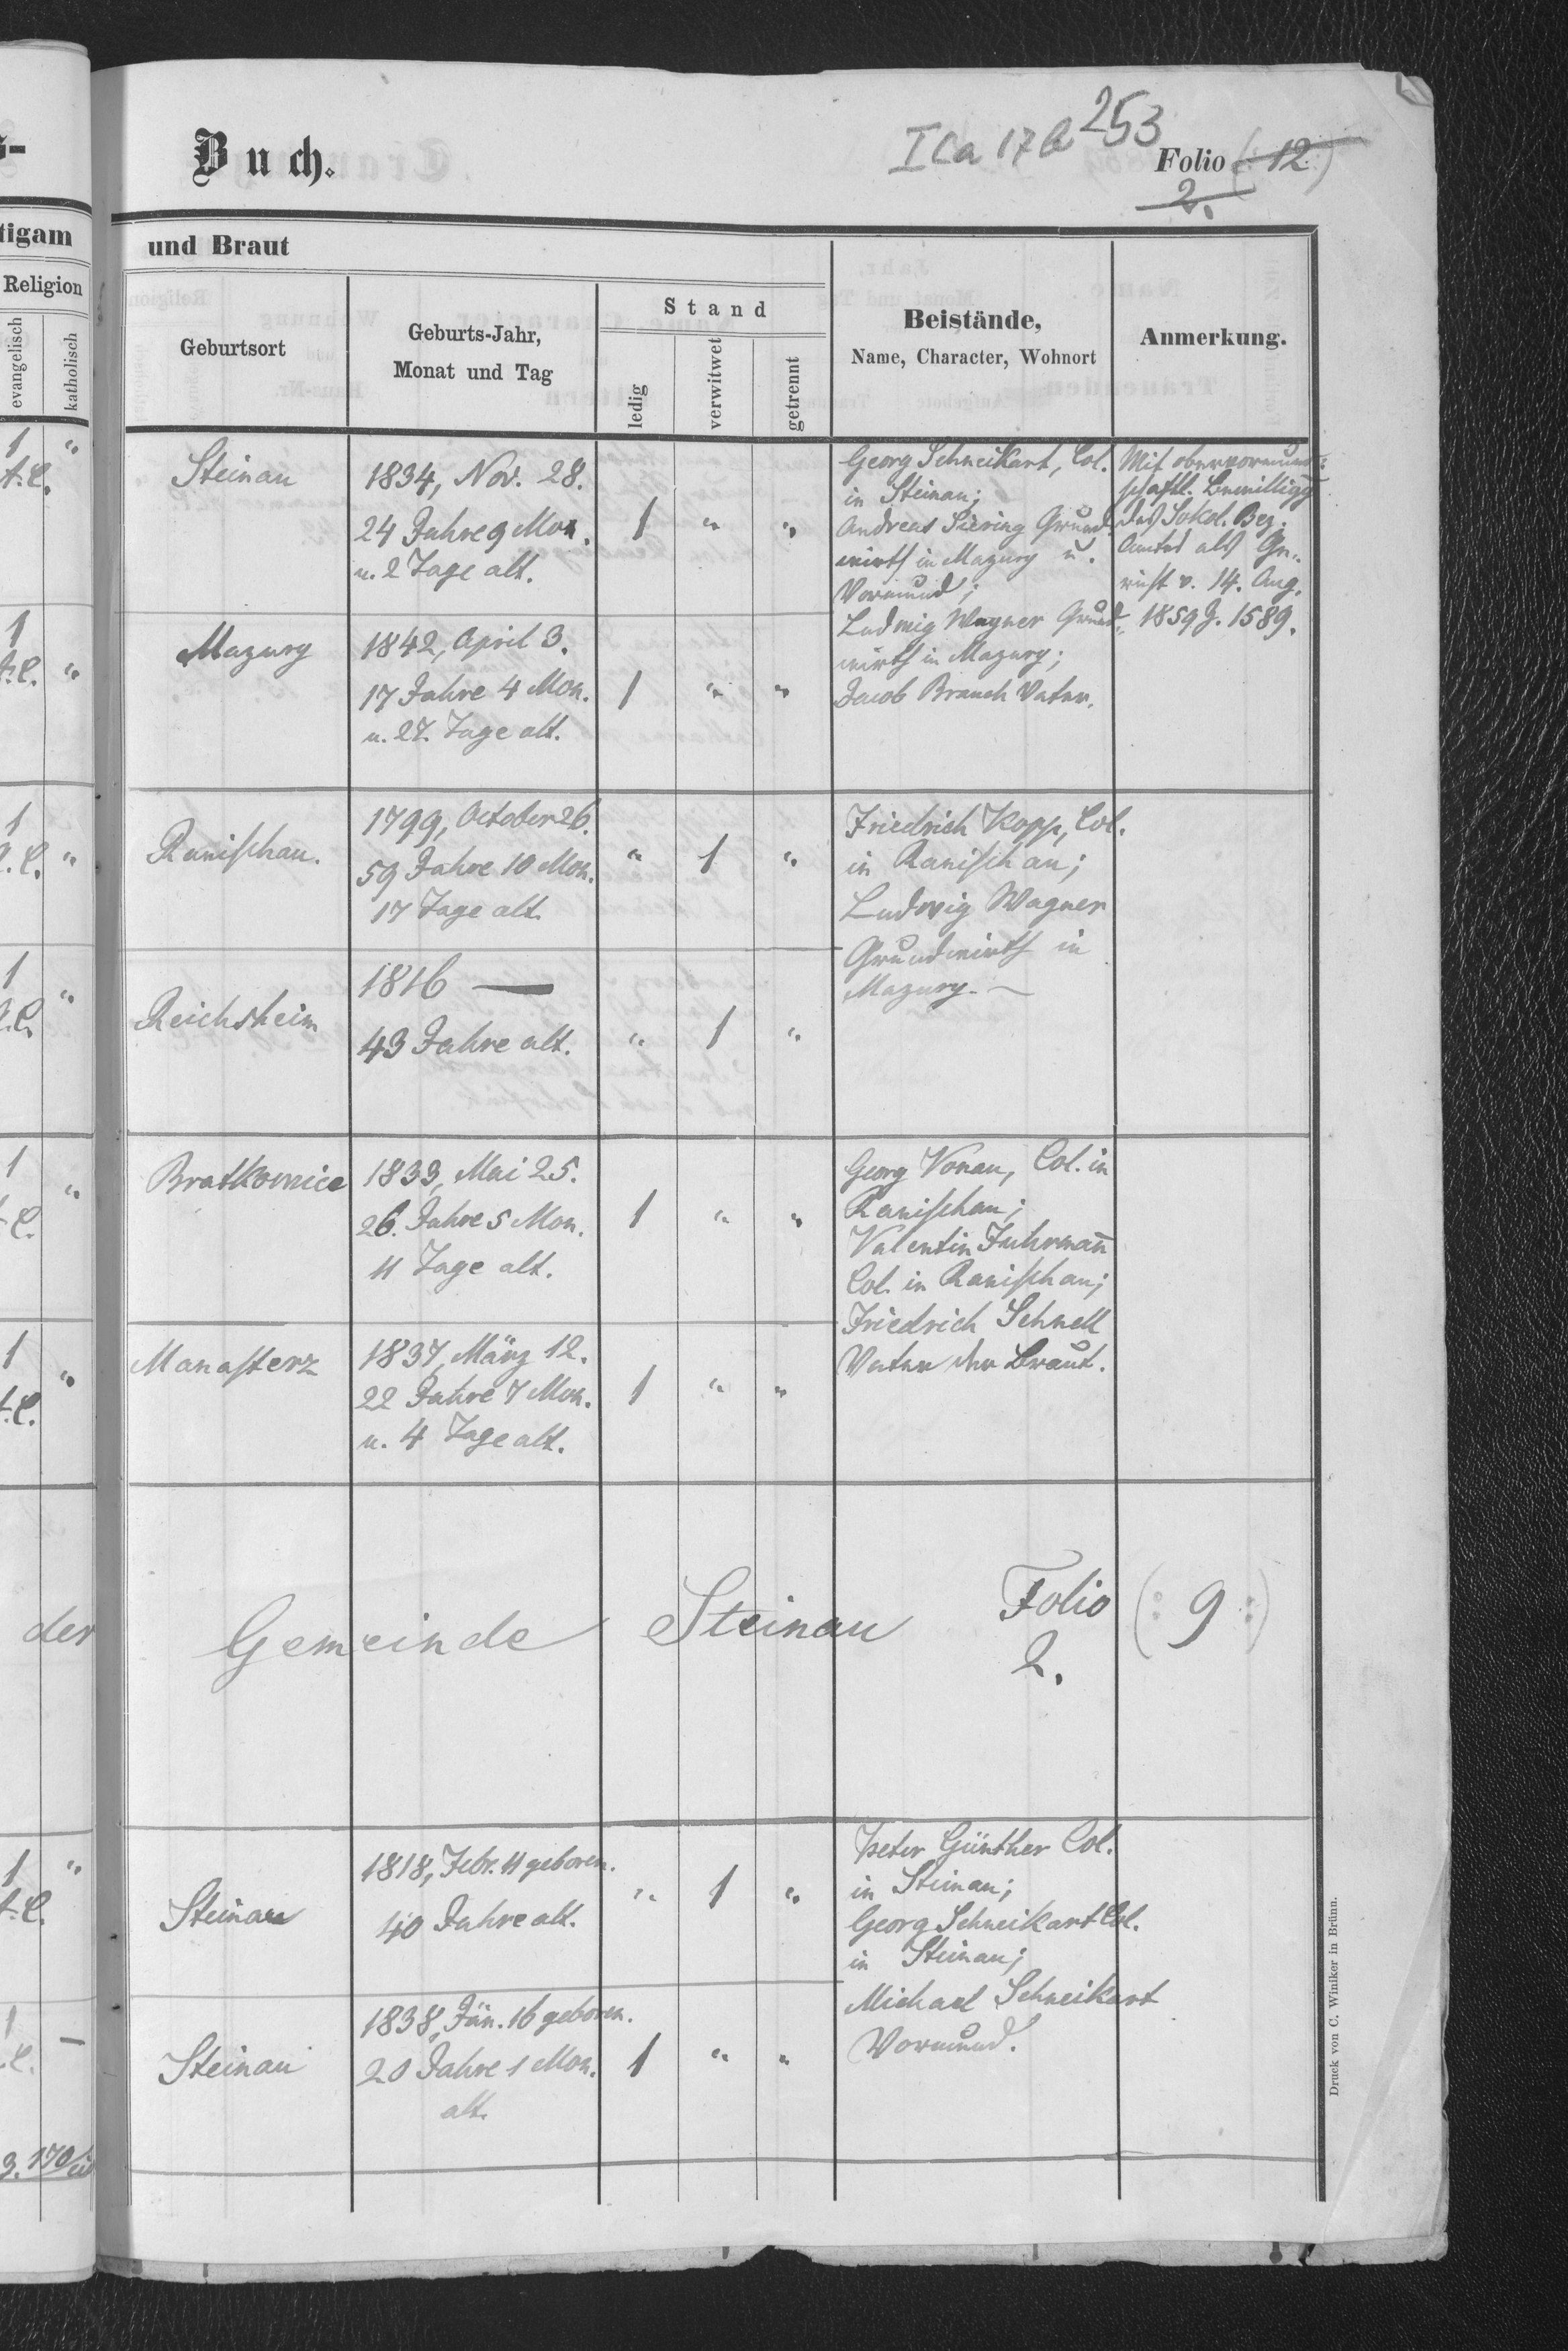 Buch.
I Ca 17 b 253
Folio (: 12 :)
2.
tigam
und Braut
Religion
evangelisch
katholisch
Geburtsort
Geburts-Jahr,
Monat und Tag
Stand
ledig
verwitwet
getrennt
Beistände,
Name, Character, Wohnort
Anmerkung.
1 "
A.C.
Steinau
1834, Nov. 28.
24 Jahre 9 Mon.
u. 2 Tage alt.
1 " "
Georg Schneikart, Col.
in Steinau;
Andreas Siering Grund-
wirth in Mazury u.
Vormund;
Ludwig Wagner Grund-
wirth in Mazury;
Jacob Brauch Vater.
Mit obervormund-
schaftl. Bewilligg
des Sokol. Bez.
Amtes als Ge-
richt v. 14. Aug.
1859 Z. 1589.
1
A.C. "
Mazury
1842, April 3.
17 Jahre 4 Mon.
u. 27. Tage alt.
1 " "
1
A.C. "
Ranischau.
1799, October 26.
59 Jahre 10 Mon.
17 Tage alt.
" 1 "
Friedrich Kopp, Col.
in Ranischau;
Ludwig Wagner
Grundwirth in
Mazury.
1 "
A.C.
Reichsheim
1816
43 Jahre alt.
" 1 "
1 "
A.C.
Bratkowice
1833, Mai 25.
26. Jahre 5 Mon.
11 Tage alt.
1 " "
Georg Vonau, Col. in
Ranischau;
Valentin Fuhrmañ
Col. in Ranischau;
Friedrich Schnell
Vater der Braut.
1 "
A.C.
Manasterz
1837, März 12.
22 Jahre 7 Mon.
u. 4 Tage alt.
1 " "
der
Gemeinde Steinau
Folio (: 9 :)
2.
1 "
A.C.
Steinau
1818, Febr. 11 geboren.
40 Jahre alt.
" 1 "
Peter Günther Col.
in Steinau;
Georg Schneikart Col.
in Steinau;
Michael Schneikart
Vormund.
1 –
Steinau
1838, Jän. 16 geboren.
20 Jahre 1 Mon.
alt.
1 " "
Druck von C. Winiker in Brünn.